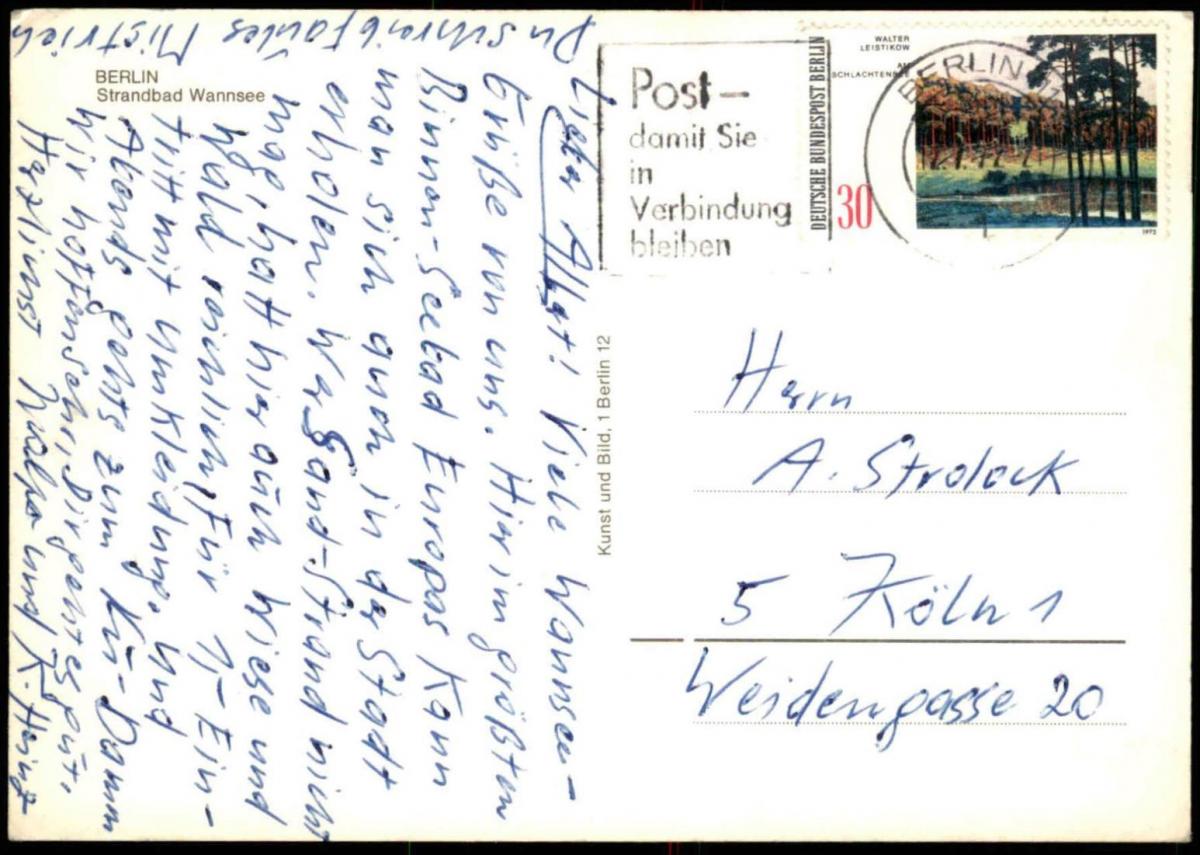 BERLIN
Strandbad Wannsee
Du schreibfaules Mistvieh
Lieber Albert! Viele Wannsee-
Grüße von uns. Hier im größten
Binnen-Seebad Europas kann
man sich auch in der Stadt
erholen. Wer Sand-Strand nicht
mag, hat hier auch Wiese und
Wald reichlich (Für 1,- Ein-
tritt mit Umkleidung. Und
Abends gehts zum Kü-Damm
Wir hoffen sehr, Dir geht es gut.
Herzlinst und K. Heinz
Kunst und Bild, 1 Berlin 12
Post-
damit Sie
in
Verbindung
bleiben
DEUTSCHE BUNDESPOST BERLIN
WALTER
LEISTIKOW
AM
SCHLACHTENSEE
30
1972
BERLIN
Herrn
A. Strolock
5 Köln 1
Weidengasse 20